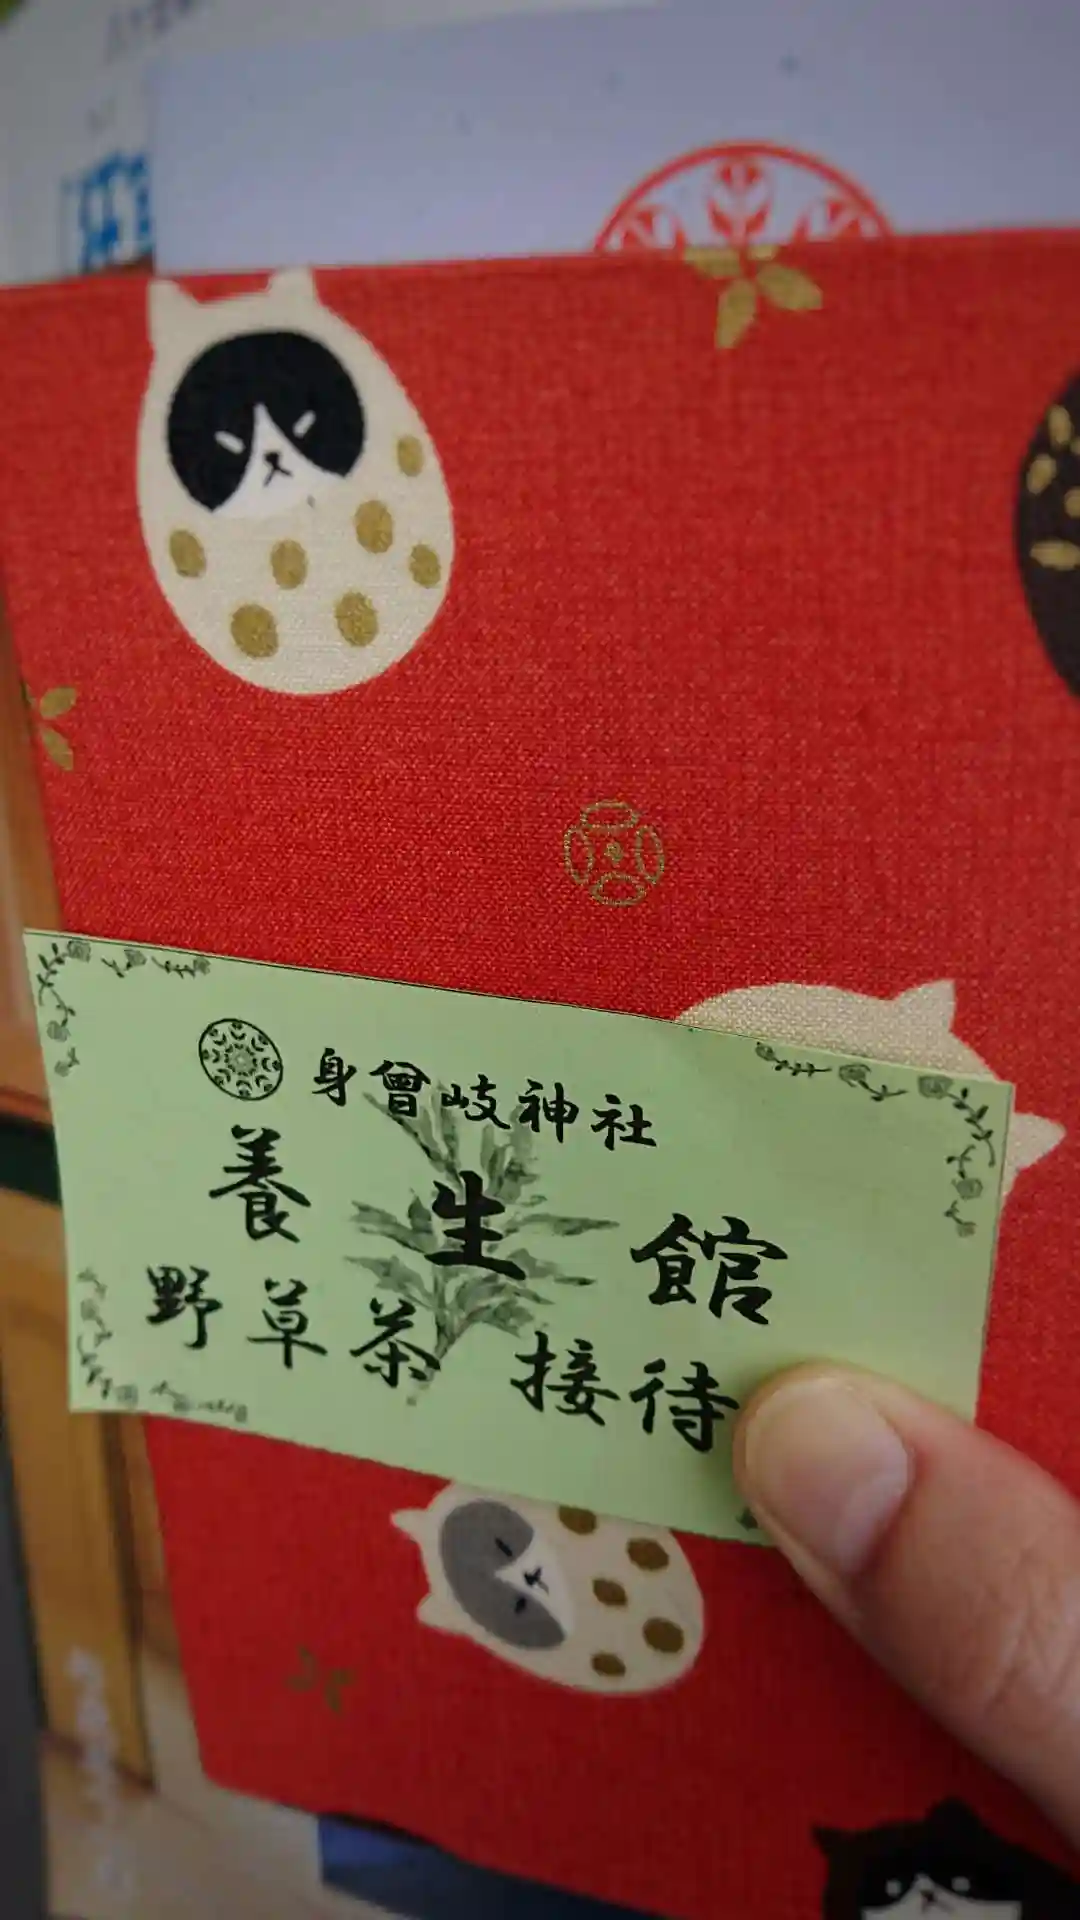 身曾岐神社
養生館
野草茶 接待